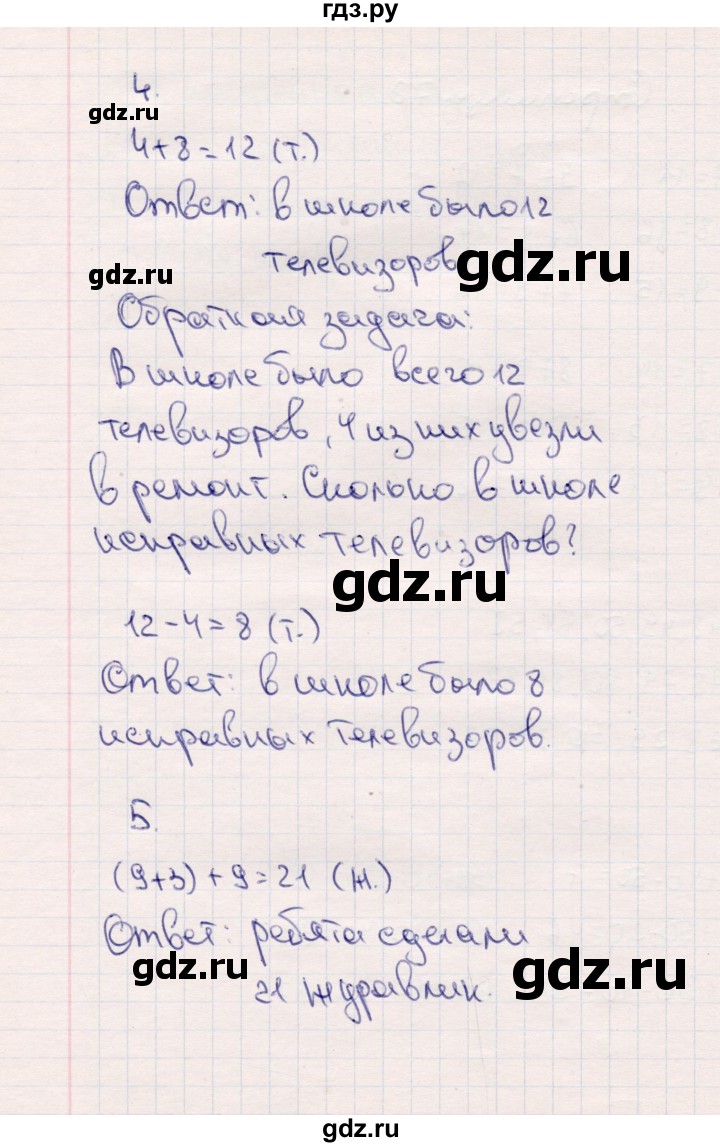 гдз.ру
4.
gdz.ru
4+8=12 (т.)
Ответ: в школе было 12
gdz.ru
телевизоров
gdz.ru
Обратная задача:
В школе было всего 12
телевизоров, 4 из них увезли
в ремонт. Сколько в школе
исправных телевизоров?
gdz.ru
12-4=8 (т.)
Ответ: в школе было 8
исправных телевизоров.
5.
(9+3)+9=21 (ж.)
Ответ: ребята сделали
gdz.ru
gdz.ru
21 журавлик.
gdz.ru